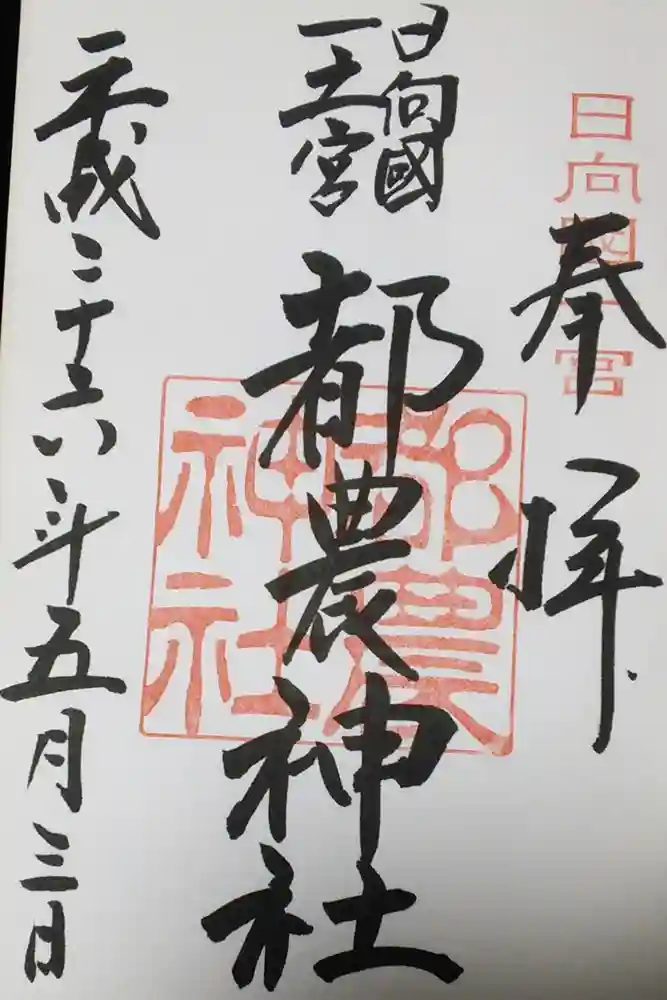 奉拝
日向國一宮
日向國
一之宮
都農神社
都農神社
平成二十六年五月三日